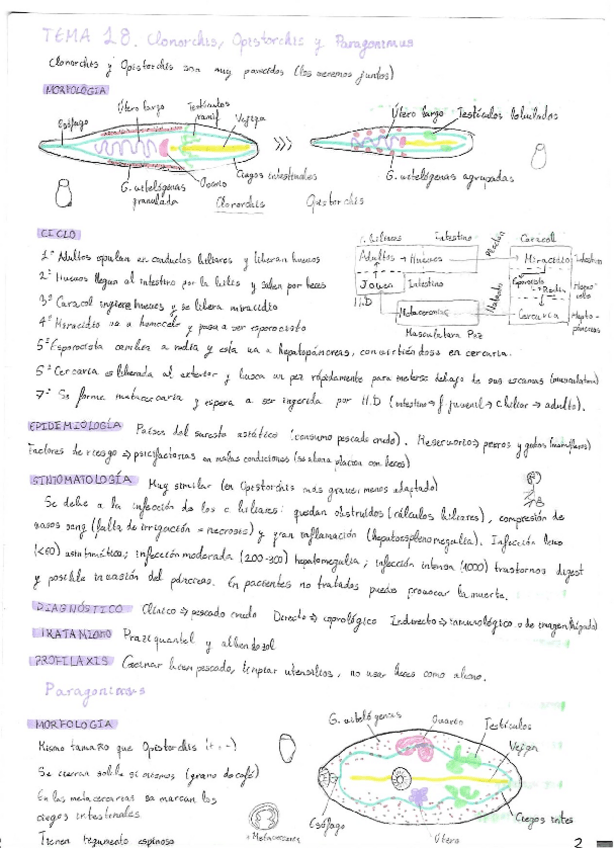 TEMA 18. Clonorchis, Opistorchis y Paragonimus
Clonorchis y Opistorchis son muy parecidos (los veremos juntos)
MORFOLOGÍA
Útero largo
Testículos ramif
Esófago
Vejiga
Ciegos intestinales
Ovario
G. vitelógenas granulada
Clonorchis
>>>
Útero largo
Testículos lobulados
G. vitelógenas agrupadas
Opistorchis
CICLO
1º Adultos copulan en conductos biliares y liberan huevos
2º Huevos llegan al intestino por la bilis y salen por heces
3º Caracol ingiere huevos y se libera miracidio
4º Miracidio va a hemocele y pasa a ser esporocisto
5º Esporocisto cambia a redia y esta va a hepatopáncreas, convirtiéndose en cercaria.
6º Cercaria es liberada al exterior y busca un pez rápidamente para meterse debajo de sus escamas (musculatura)
7º Se forma metacercaria y espera a ser ingerida por H.D (intestino → f. juvenil → c. biliar → adulto).
Intestino
Caracol
Adultos → Huevos
Miracidio
Intestino
Joven
Intestino
H.D
Esporocisto
Redia
Metacercarias
Cercaria
Hepato-
páncreas
Musculatura Pez
EPIDEMIOLOGÍA Países del sureste asiático (consumo pescado crudo). Reservorio → perros y gatos (mamíferos)
Factores de riesgo → piscifactorias en malas condiciones (se abona con heces)
SINTOMATOLOGÍA Muy similar (en Opistorchis más grave: menos adaptado)
Se debe a la infección de los c biliares: quedan obstruidos (cálculos biliares), compresión de
vasos sang (falta de irrigación = necrosis) y gran inflamación (hepatoesplenomegalia). Infección leve
(<60) asintomática; infección moderada (200-300) hepatomegalia; infección intensa (1000) trastornos digest
y posible invasión del páncreas. En pacientes no tratados puede provocar la muerte.
DIAGNÓSTICO Clínico → pescado crudo Directo → coprológico Indirecto → inmunológico o de imagen (hígado)
TRATAMIENTO Praziquantel y albendazol
PROFILAXIS Cocinar bien pescado, limpiar utensilios, no usar heces como abono.
Paragonimus
MORFOLOGÍA
Mismo tamaño que Opistorchis
Se cierran sobre si mismos (grano de café)
En las metacercarias se marcan los
ciegos intestinales
Tienen tegumento espinoso
Metacercaria
G. vitelógenas
Ovario
Testículos
Vejiga
Ciegos intes
Esófago
Útero
2